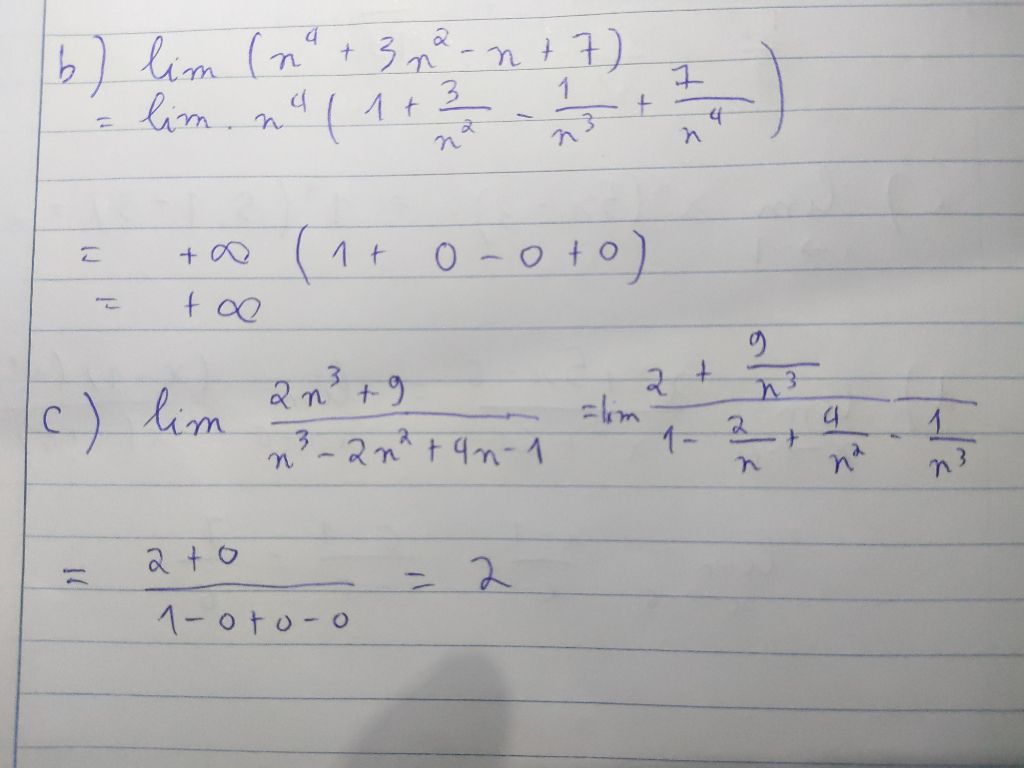 b) lim (n⁴ + 3n² - n + 7)
= lim . n⁴ ( 1 + 3/n² - 1/n³ + 7/n⁴ )
= +∞ ( 1 + 0 - 0 + 0 )
= +∞
c) lim (2n³ + 9)/(n³ - 2n² + 4n - 1) = lim (2 + 9/n³)/(1 - 2/n + 4/n² - 1/n³)
= (2 + 0)/(1 - 0 + 0 - 0) = 2